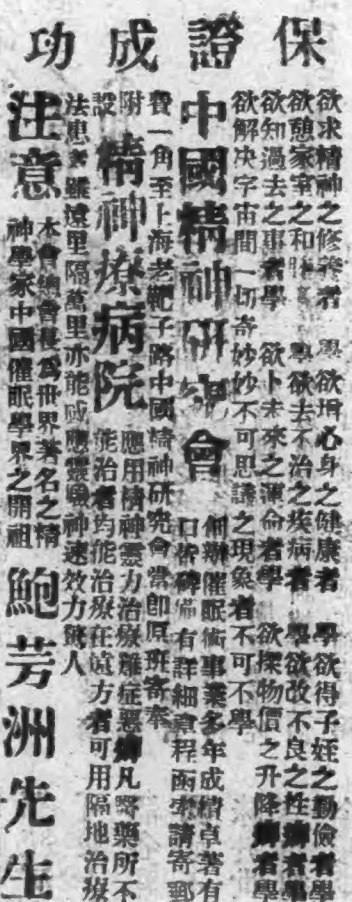 保證成功
欲求精神之修養者學欲增心身之健康者學欲得子姪之勤儉者學
欲憩家室之和睦者學欲去不治之疾病者學欲改不良之性癖者學
欲知過去之事者學欲卜未來之運命者學欲探物價之升降者學
欲解決宇宙間一切奇妙妙不可思議之現象者不可不學
中國精神研究會
創辦催眠術事業多年成績卓著有
口皆碑備有詳細章程函索請寄郵
費一角至上海老靶子路中國精神研究會當即原班寄奉
附設
精神療病院
應用精神靈力治療難症惡癖凡醫藥所不
能治者均能治療在遠方者可用隔地治療
法患者雖遠里隔萬里亦能感應靈驗神速效力驚人
注意
本會總會長為世界著名之精
神學家中國催眠學界之開祖
鮑芳洲先生